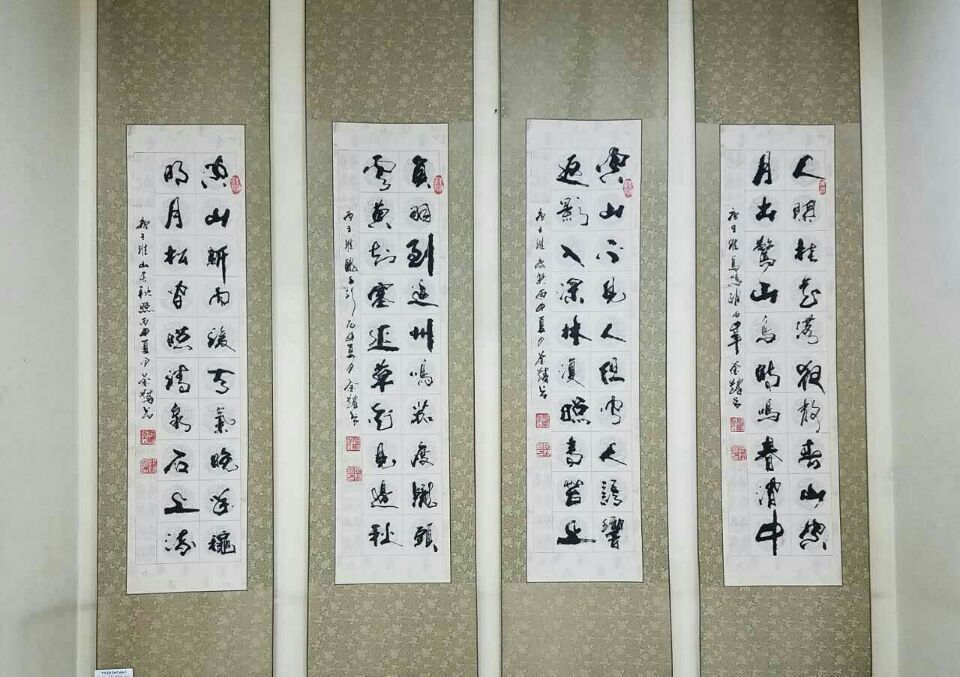 人閒桂花落夜静春山空
月出驚山鳥時鳴春澗中
唐王維鳥鳴澗丙申
空山不見人但聞人語響
返影入深林復照青苔上
唐王維鹿柴丙申夏月
負羽到邊州鳴笳度隴頭
雲黄知塞近草白見邊秋
丙申夏月
空山新雨後天氣晚來秋
明月松間照清泉石上流
唐王維山居秋暝丙申夏月